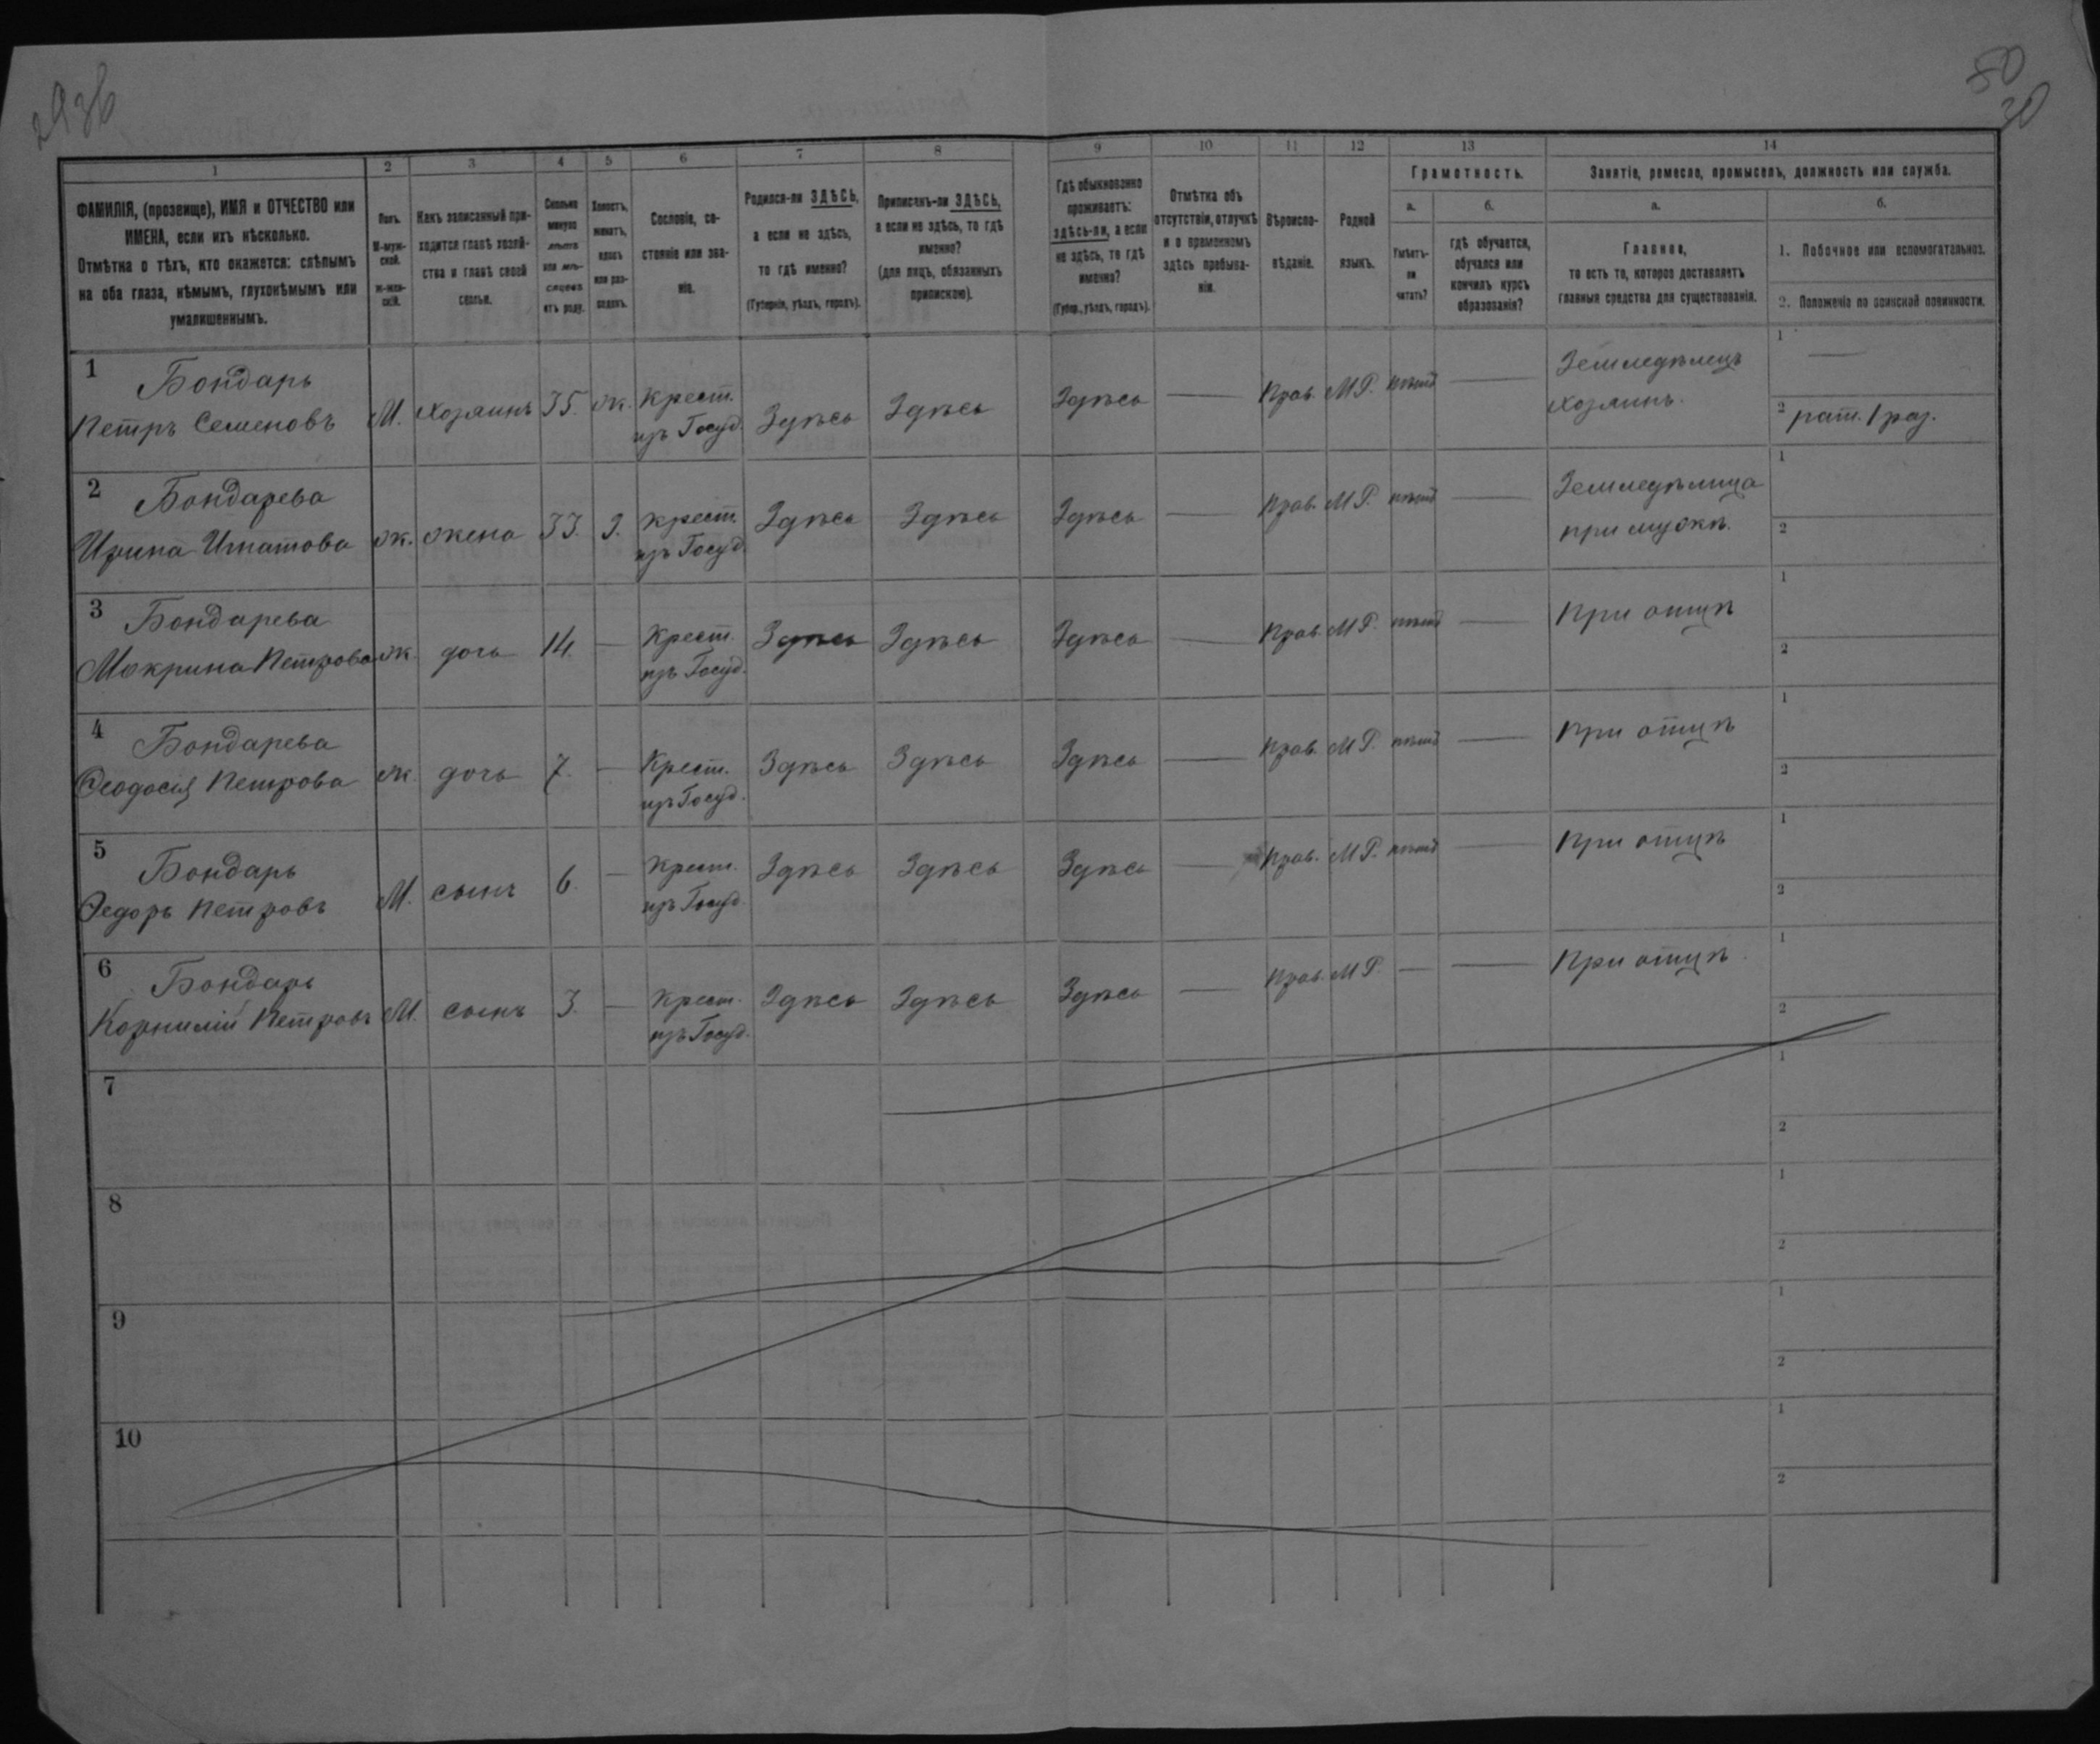 50
30
1
2
3
4
5
6
7
8
9
10
11
12
13
14
ФАМИЛІЯ, (прозвище), ИМЯ и ОТЧЕСТВО или
ИМЕНА, если ихъ нѣсколько.
Отмѣтка о тѣхъ, кто окажется: слѣпымъ
на оба глаза, нѣмымъ, глухонѣмымъ или
умалишеннымъ.
Полъ.
М-муж-
ской.
ж-жен-
скій.
Какъ записанный при-
ходится главѣ хозяй-
ства и главѣ своей
семьи.
Сколько
минуло
лѣтъ
или мѣ-
сяцевъ
отъ роду.
Холостъ,
женатъ,
вдовъ
или раз-
веденъ.
Сословіе, со-
стояніе или зва-
ніе.
Родился-ли ЗДѢСЬ,
а если не здѣсь,
то гдѣ именно?
(Губернія, уѣздъ, городъ).
Приписанъ-ли ЗДѢСЬ,
а если не здѣсь, то гдѣ
именно?
(для лицъ, обязанныхъ
припискою).
Гдѣ обыкновенно
проживаетъ:
здѣсь-ли, а если
не здѣсь, то гдѣ
именно?
(Губер., уѣздъ, городъ).
Отмѣтка объ
отсутствіи, отлучкѣ
и о временномъ
здѣсь пребыва-
ніи.
Вѣроиспо-
вѣданіе.
Родной
языкъ.
Грамотность.
а.
Умѣетъ-
ли
читать?
б.
гдѣ обучается,
обучался или
кончилъ курсъ
образованія?
Занятіе, ремесло, промыселъ, должность или служба.
а.
Главное,
то есть то, которое доставляетъ
главныя средства для существованія.
б.
1. Побочное или вспомогательное.
2. Положеніе по воинской повинности.
1 Бондарь
Петръ Семеновъ М. хозяинъ 35. ж. Крест. изъ Госуд. Здѣсь Здѣсь Здѣсь — Прав. М.Р. нѣтъ — Земледѣлецъ
хозяинъ.
1 —
2 рат. 1 раз.
2 Бондарева
Ирина Игнатова ж. жена 33. З. Крест. изъ Госуд. Здѣсь Здѣсь Здѣсь — Прав. М.Р. нѣтъ — Земледѣлица
при мужѣ.
1
2
3 Бондарева
Мокрина Петрова ж. дочь 14. — Крест. изъ Госуд. Здѣсь Здѣсь Здѣсь — Прав. М.Р. нѣтъ — При отцѣ
1
2
4 Бондарева
Ѳеодосія Петрова ж. дочь 7. — Крест. изъ Госуд. Здѣсь Здѣсь Здѣсь — Прав. М.Р. нѣтъ — При отцѣ
1
2
5 Бондарь
Ѳедоръ Петровъ М. сынъ 6. — Крест. изъ Госуд. Здѣсь Здѣсь Здѣсь — Прав. М.Р. нѣтъ — При отцѣ
1
2
6 Бондарь
Корнилій Петровъ М. сынъ 3. — Крест. изъ Госуд. Здѣсь Здѣсь Здѣсь — Прав. М.Р. — — При отцѣ.
1
2
7
1
2
8
1
2
9
1
2
10
1
2